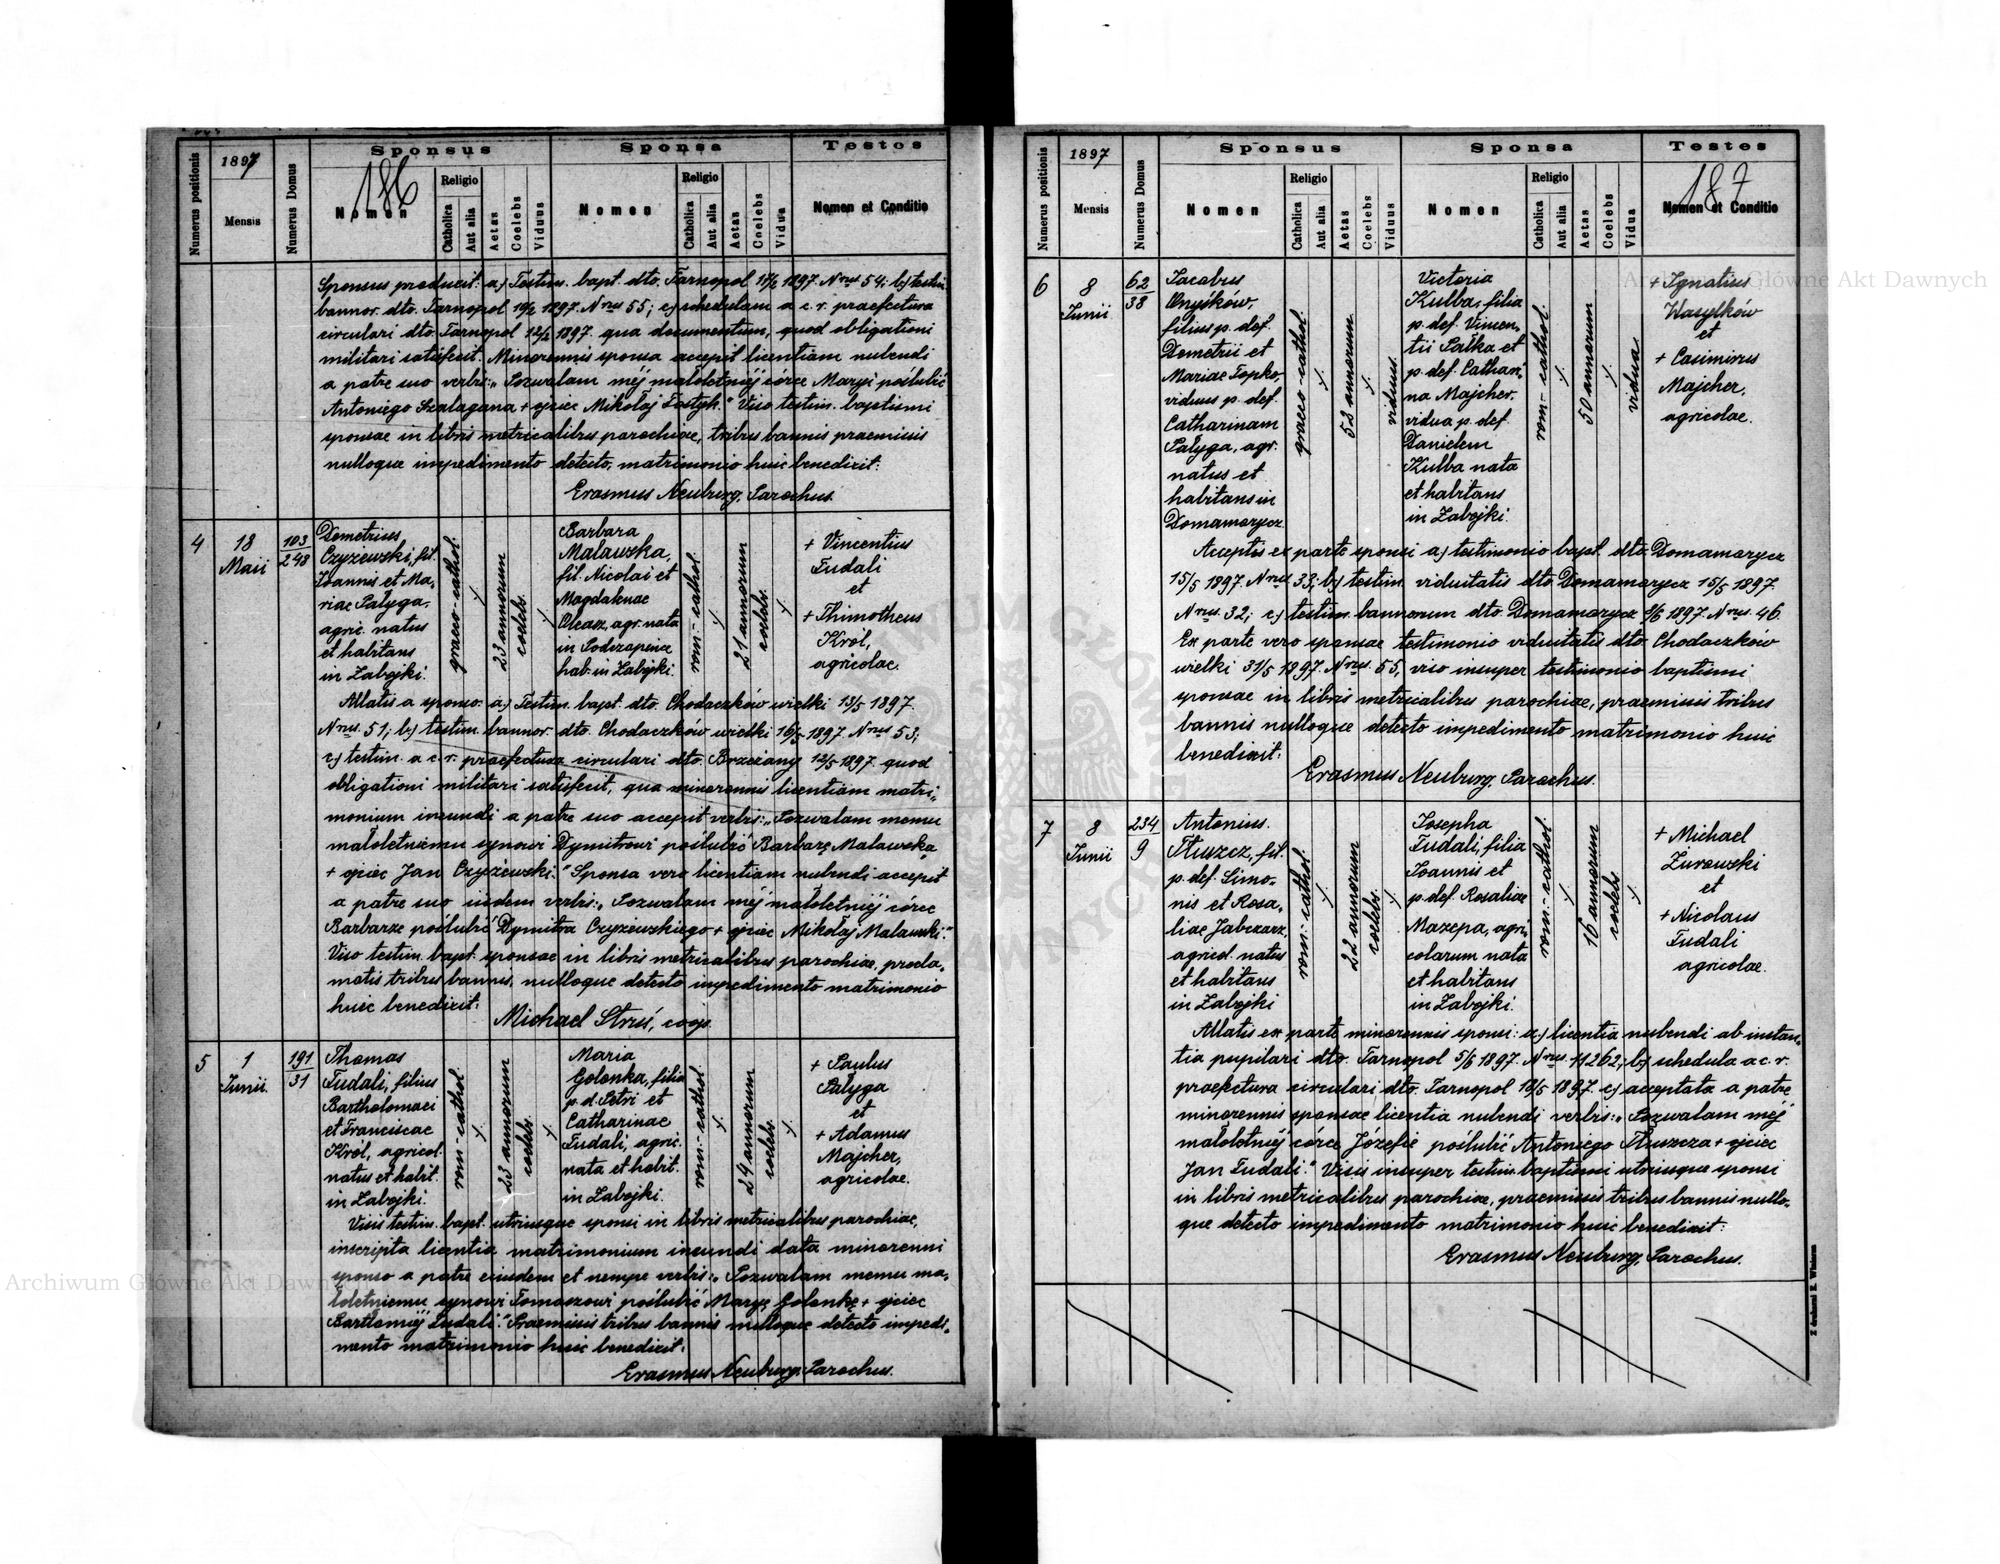 Numerus positionis
1897
Mensis
Numerus Domus
Sponsus
186
Nomen
Religio
Catholica
Aut alia
Aetas
Coelebs
Viduus
Sponsa
Nomen
Religio
Catholica
Aut alia
Aetas
Coelebs
Vidua
Testes
Nomen et Conditio
Sponsus producit: a) Testim. bapt. dto. Tarnopol 17/2 1897. Nrus 54; b) testim.
bannor. dto. Tarnopol 1897. Nrus 55; c) schedulam a c. r. praefectura
circulari dto. Tarnopol 12/2 1897. qua documentum, quod obligationi
militari satisfecit. Minorennis sponsa accepit licentiam nubendi
a patre suo verbis: „Pozwalam mej małoletniéj córce Maryi poślubić
Antoniego Szałagana + ojciec Mikołaj Tostyk.” Viso testim. baptismi
sponsae in libris metricalibus parochiae, tribus bannis praemissis
nulloque impedimento detecto, matrimonio huic benedixit:
Erasmus Neuburg, Parochus.
4
18
Maii
103
248
Demetrius
Czyżewski, fil.
Joannis et Ma-
riae Pałyga,
agric. natus
et habitans
in Zabojki.
graeco-cathol.
23 annorum
coelebs.
Barbara
Malawska,
fil. Nicolai et
Magdalenae
Olearz, agr. nata
in Podczapince
hab. in Zabojki.
rom-cathol.
21 annorum
coelebs.
+ Vincentius
Tudali
et
+ Thimotheus
Król,
agricolae.
Allatis a sponso: a) Testim. bapt. dto. Chodaczków wielki 13/5 1897.
Nrus. 51; b) testim. bannor. dto. Chodaczków wielki 16/5 1897. Nrus 53;
c) testim. a c. r. praefectura circulari dto. Brzeżany 12/5 1897. quod
obligationi militari satisfecit, qua minorennis licentiam matri-
monium ineundi a patre suo accepit verbis: „Pozwalam memu
małoletniemu synowi Dymitrowi poślubić Barbarę Malawską
+ ojciec Jan Czyżewski.” Sponsa vero licentiam nubendi accepit
a patre suo iisdem verbis: „Pozwalam méj małoletniéj córce
Barbarze poślubić Dymitra Czyżewskiego + ojciec Mikołaj Malawski.”
Viso testim. bapt. sponsae in libris metricalibus parochiae, procla-
matis tribus bannis, nulloque detecto impedimento matrimonio
huic benedixit:
Michael Struś, coop.
5
1
Junii
191
31
Thomas
Tudali, filius
Bartholomaei
et Franciscae
Król, agricol.
natus et habit.
in Zabojki.
rom-cathol
23 annorum
coelebs.
Maria
Golonka, filia
p. d. Petri et
Catharinae
Tudali, agric.
nata et habit.
in Zabojki.
rom-cathol.
24 annorum
coelebs.
+ Paulus
Pałyga
et
+ Adamus
Majcher,
agricolae.
Visis testim. bapt. utriusque sponsi in libris metricalibus parochiae,
inscripta licentia matrimonium ineundi data minorenni
sponso a patre eiusdem et nempe verbis: „Pozwalam memu ma-
łoletniemu synowi Tomaszowi poślubić Maryę Golonkę + ojciec
Bartłomiéj Tudali.” Praemissis tribus bannis nulloque detecto impedi-
mento matrimonio huic benedixit:
Erasmus Neuburg, Parochus.
Numerus positionis
1897
Mensis
Numerus Domus
Sponsus
Nomen
Religio
Catholica
Aut alia
Aetas
Coelebs
Viduus
Sponsa
Nomen
Religio
Catholica
Aut alia
Aetas
Coelebs
Vidua
Testes
187
Nomen et Conditio
6
8
Junii
62
38
Jacobus
Onyśków,
filius p. def.
Demetrii et
Mariae Topko,
viduus p. def.
Catharinam
Pałyga, agr.
natus et
habitans in
Domamorycz
graeco-cathol.
53 annorum
viduus.
Victoria
Kulba, filia
p. def. Vincen-
tii Pałka et
p. def. Cathari-
na Majcher,
vidua p. def.
Danielem
Kulba nata
et habitans
in Zabojki.
rom-cathol.
50 annorum
vidua.
+ Ignatius
Wasylków
et
+ Casimirus
Majcher,
agricolae.
Acceptis ex parte sponsi a) testimonio bapt. dto. Domamorycz
15/5 1897. Nrus 33; b) testim. viduitatis dto. Domamorycz 15/5 1897.
Nrus. 32; c) testim. bannorum dto. Domamorycz 8/6 1897. Nrus. 46.
Ex parte vero sponsae testimonio viduitatis dto. Chodaczków
wielki 31/5 1897. Nrus. 55, viso insuper testimonio baptismi
sponsae in libris metricalibus parochiae, praemissis tribus
bannis nulloque detecto impedimento matrimonio huic
benedixit:
Erasmus Neuburg, Parochus.
7
8
Junii
234
9
Antonius
Tłuszcz, fil.
p. def. Simo-
nis et Rosa-
liae Jabczarz,
agricol. natus
et habitans
in Zabojki
rom-cathol.
22 annorum
coelebs.
Josepha
Tudali, filia
Joannis et
p. def. Rosaliae
Mazepa, agri-
colarum nata
et habitans
in Zabojki.
rom-cathol.
16 annorum
coelebs
+ Michael
Żurowski
et
+ Nicolaus
Tudali
agricolae.
Allatis ex parte minorennis sponsi: a) licentia nubendi ab instan-
tia pupilari dto. Tarnopol 5/6 1897. Nrus. 11262; b) schedula a c. r.
praefectura circulari dto. Tarnopol 18/5 1897. c) acceptata a patre
minorennis sponsae licentia nubendi verbis: „Pozwalam méj
małoletniéj córce Józefie poślubić Antoniego Tłuszcza + ojciec
Jan Tudali.” Visis insuper testim. baptismi utriusque sponsi
in libris metricalibus parochiae, praemissis tribus bannis nullo-
que detecto impedimento matrimonio huic benedixit:
Erasmus Neuburg, Parochus.
Z drukarni E. Winiarza
Archiwum Główne Akt Dawnych
Archiwum Główne Akt Dawnych